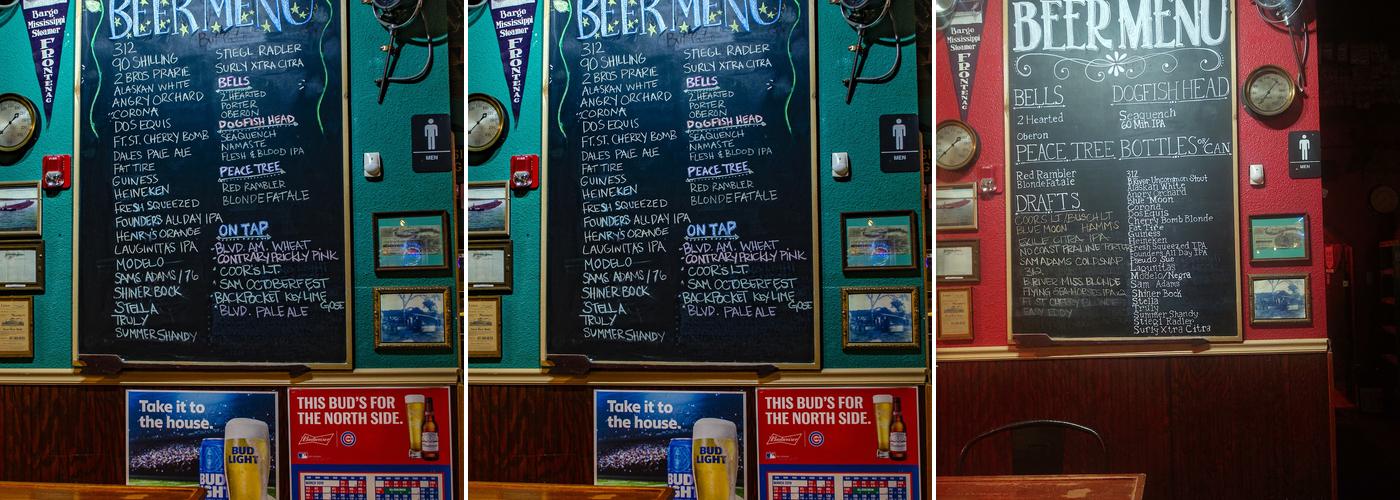 Barge
Mississippi
Steamer
FRONTENAC
BEER MENU
312
90 SHILLING
2 BROS PRARIE
ALASKAN WHITE
ANGRY ORCHARD
CORONA
DOS EQUIS
FT. ST. CHERRY BOMB
DALES PALE ALE
FAT TIRE
GUINESS
HEINEKEN
FRESH SQUEEZED
FOUNDERS ALL DAY IPA
HENRY'S ORANGE
LAUGINITAS IPA
MODELO
SAMS ADAMS / 76
SHINER BOCK
STELLA
TRULY
SUMMER SHANDY
STIEGL RADLER
SURLY XTRA CITRA
BELLS
2 HEARTED
PORTER
OBERON
DOGFISH HEAD
SEAQUENCH
NAMASTE
FLESH & BLOOD IPA
PEACE TREE
RED RAMBLER
BLONDE FATALE
ON TAP
BLVD AM. WHEAT
CONTRARY PRICKLY PINK
COORS LT.
SAM OCTOBERFEST
BACKPOCKET KEY LIME
GOSE
BLVD. PALE ALE
MEN
Take it to
the house.
BUD
LIGHT
THIS BUD'S FOR
THE NORTH SIDE.
Budweiser
Barge
Mississippi
Steamer
FRONTENAC
BEER MENU
312
90 SHILLING
2 BROS PRARIE
ALASKAN WHITE
ANGRY ORCHARD
CORONA
DOS EQUIS
FT. ST. CHERRY BOMB
DALES PALE ALE
FAT TIRE
GUINESS
HEINEKEN
FRESH SQUEEZED
FOUNDERS ALL DAY IPA
HENRY'S ORANGE
LAUGINITAS IPA
MODELO
SAMS ADAMS / 76
SHINER BOCK
STELLA
TRULY
SUMMER SHANDY
STIEGL RADLER
SURLY XTRA CITRA
BELLS
2 HEARTED
PORTER
OBERON
DOGFISH HEAD
SEAQUENCH
NAMASTE
FLESH & BLOOD IPA
PEACE TREE
RED RAMBLER
BLONDE FATALE
ON TAP
BLVD AM. WHEAT
CONTRARY PRICKLY PINK
COORS LT.
SAM OCTOBERFEST
BACKPOCKET KEY LIME
GOSE
BLVD. PALE ALE
MEN
Take it to
the house.
BUD
LIGHT
THIS BUD'S FOR
THE NORTH SIDE.
Budweiser
Barge
Mississippi
Steamer
FRONTENAC
BEER MENU
BELLS
2 Hearted
Oberon
DOGFISH HEAD
Seaquench
60 Min IPA
PEACE TREE
Red Rambler
Blonde Fatale
BOTTLES OR CAN
312
Uncommon Stout
Alaskan White
Angry Orchard
Blue Moon
Corona
Dos Equis
Cherry Bomb Blonde
Fat Tire
Guiness
Heineken
Fresh Squeezed IPA
Founders All Day IPA
Pseudo Sue
Lagunitas
Modelo/Negra
Sam Adams
Shiner Bock
Stella
Truly
Summer Shandy
Stiegl Radler
Surly Xtra Citra
DRAFTS
COORS LT/BUSCH LT
BLUE MOON HAMM'S
EXILE CITRA IPA
NO COAST
SAM ADAMS COLD SNAP
312
MISS BLONDE
FLYING SEAHORSE IPA
MEN